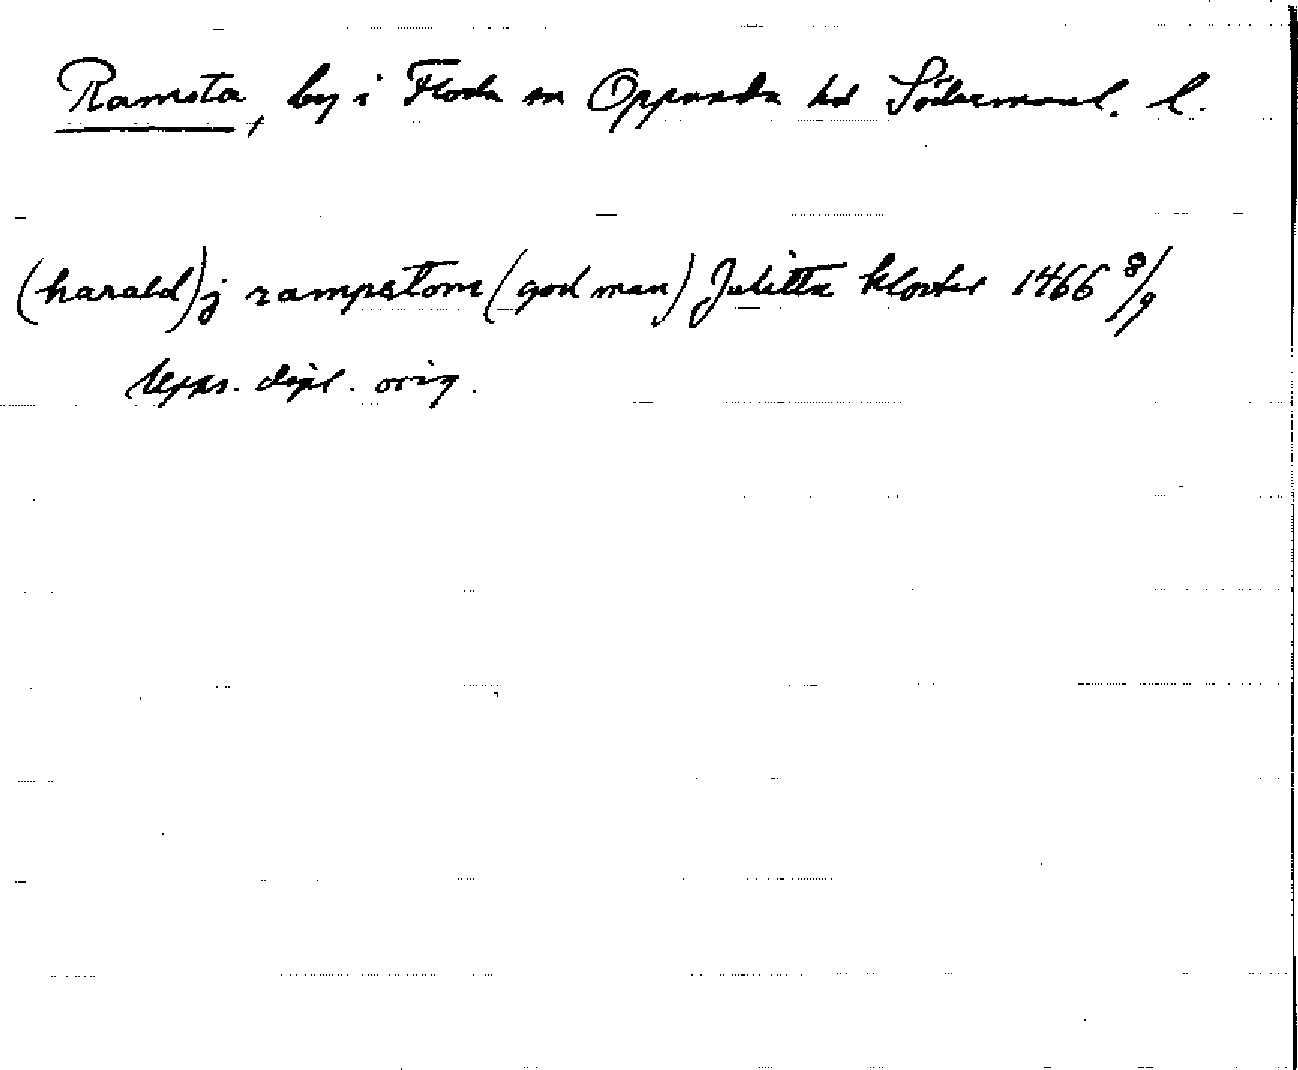 Ramsta, by i Floda sn Oppunda hd Södermanl. l.
(harald) j rampstom (god man) Julitta kloster 1466 8/9
Upps. dipl. orig.